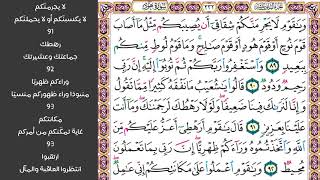 الجزء الثاني عشر ٢٣٢ سورة هود
وَيَٰقَوْمِ لَا يَجْرِمَنَّكُمْ شِقَاقِىٓ أَن يُصِيبَكُم مِّثْلُ مَآ أَصَابَ
قَوْمَ نُوحٍ أَوْ قَوْمَ هُودٍ أَوْ قَوْمَ صَٰلِحٍ ۚ وَمَا قَوْمُ لُوطٍ مِّنكُم
بِبَعِيدٍ ٨٩ وَٱسْتَغْفِرُوا۟ رَبَّكُمْ ثُمَّ تُوبُوٓا۟ إِلَيْهِ ۚ إِنَّ رَبِّى
رَحِيمٌ وَدُودٌ ٩٠ قَالُوا۟ يَٰشُعَيْبُ مَا نَفْقَهُ كَثِيرًا مِّمَّا تَقُولُ
وَإِنَّا لَنَرَىٰكَ فِينَا ضَعِيفًا ۖ وَلَوْلَا رَهْطُكَ لَرَجَمْنَٰكَ ۖ وَمَآ أَنتَ
عَلَيْنَا بِعَزِيزٍ ٩١ قَالَ يَٰقَوْمِ أَرَهْطِىٓ أَعَزُّ عَلَيْكُم مِّنَ
ٱللَّهِ وَٱتَّخَذْتُمُوهُ وَرَآءَكُمْ ظِهْرِيًّا ۖ إِنَّ رَبِّى بِمَا تَعْمَلُونَ
مُحِيطٌ ٩٢ وَيَٰقَوْمِ ٱعْمَلُوا۟ عَلَىٰ مَكَانَتِكُمْ إِنِّى عَٰمِلٌ
لا يجرمنكم
لا يكسبنكم أو لا يحملنكم
91
رهطك
جماعتك وعشيرتك
92
وراءكم ظهريًا
منبوذا وراء ظهوركم منسيًا
93
مكانتكم
غاية تمكنكم من أمركم
93
ارتقبوا
انتظروا العاقبة والمآل